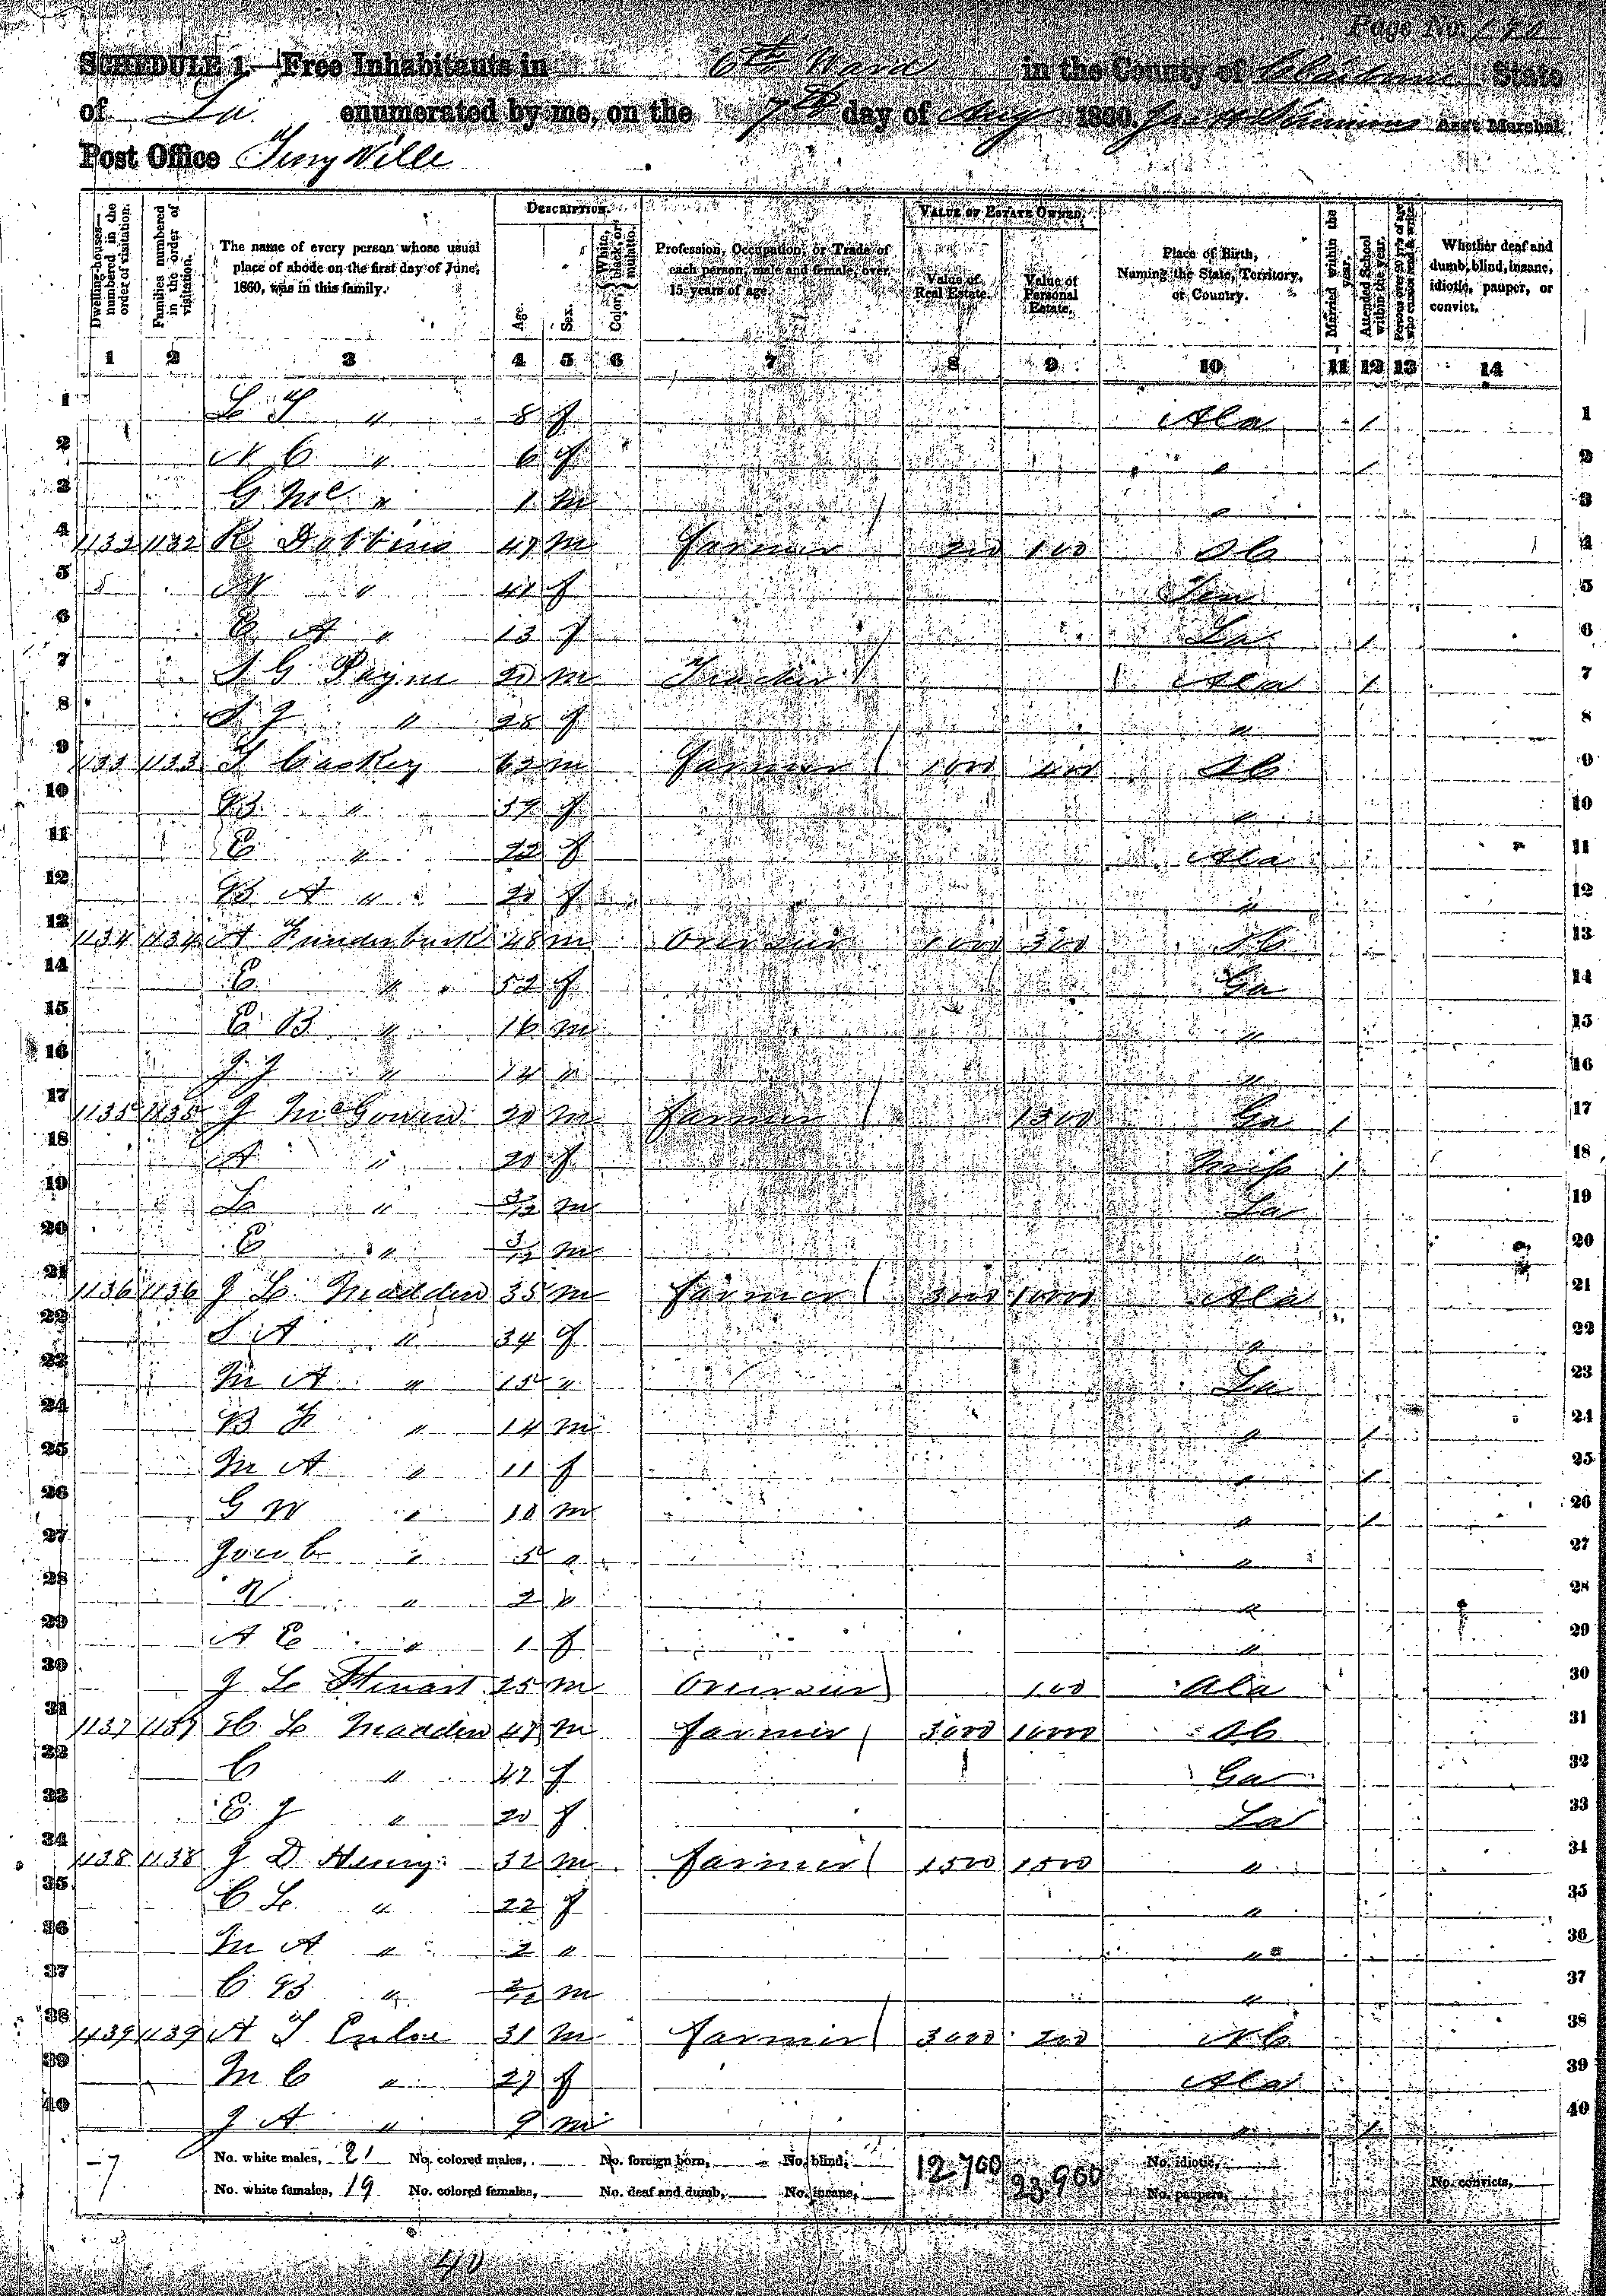 Page No.
SCHEDULE 1.—Free Inhabitants in 6th Ward in the County of Claiborne State
of La. enumerated by me, on the 7th day of Aug 1860. Ass't Marshal.
Post Office
Dwelling-houses—numbered in the order of visitation.
Families numbered in the order of visitation.
The name of every person whose usual place of abode on the first day of June, 1860, was in this family.
DESCRIPTION.
Age.
Sex.
Color, White, black, or mulatto.
Profession, Occupation, or Trade of each person, male and female, over 15 years of age.
VALUE OF ESTATE OWNED.
Value of Real Estate.
Value of Personal Estate.
Place of Birth, Naming the State, Territory, or Country.
Married within the year.
Attended School within the year.
Persons over 20 y'rs of age who cannot read & write.
Whether deaf and dumb, blind, insane, idiotic, pauper, or convict.
1 2 3 4 5 6 7 8 9 10 11 12 13 14
1 " 8 f Ala / 1
2 N C " 6 f " / 2
3 G Mc " 1 m " 3
4 1132 1132 R Dobbins 47 m Farmer 200 100 4
5 N " 41 f Ten 5
6 E A " 13 f La / 6
7 S G Payne m Teacher Ala / 7
8 S J " 28 f " 8
9 1133 1133 T Caskey 62 m Farmer 1000 9
10 B " f " 10
11 E " 22 f Ala 11
12 B A " 20 f " 12
13 1134 1134 A Funderburk 48 m Overseer 1000 300 13
14 E " 52 f Ga 14
15 E B " 16 m " 15
16 J J " 14 " " 16
17 1135 1135 J McGowen m Farmer 1500 Ga / 17
18 A " 20 f Miss / 18
19 L " 3/12 m La 19
20 E " 3/12 m " 20
21 1136 1136 J L Madden 35 m Farmer 3000 10000 Ala 21
22 S A " 34 f " 22
23 M A " 15 " La 23
24 B F " 14 m " / 24
25 M A " 11 f " / 25
26 G W " 10 m " / 26
27 " 5 " " 27
28 " 2 " " 28
29 A E " 1 f " 29
30 J L Stewart 25 m Overseer 100 Ala 30
31 1137 1137 H L Madden 47 m Farmer 3000 10000 31
32 C " 42 f Ga 32
33 E J " 20 f La 33
34 1138 1138 J D Henry 32 m Farmer 1500 1500 " 34
35 C L " 22 f " 35
36 M A " 2 " " 36
37 C B " 2/12 m " 37
38 1139 1139 A T Enloe 31 m Farmer 3000 200 N C 38
39 M C " 27 f Ala 39
40 J A " 9 m " / 40
7 No. white males, 21 No. colored males, No. foreign born, No. blind, 12.700 23.900 No. idiotic,
No. white females, 19 No. colored females, No. deaf and dumb, No. insane, No. paupers, No. convicts,
40